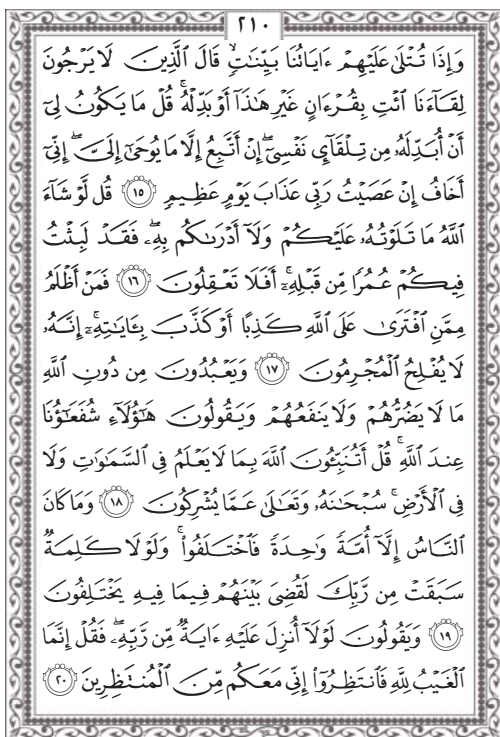 ٢١٠
وَإِذَا تُتْلَىٰ عَلَيْهِمْ ءَايَاتُنَا بَيِّنَٰتٍ قَالَ ٱلَّذِينَ لَا يَرْجُونَ
لِقَآءَنَا ٱئْتِ بِقُرْءَانٍ غَيْرِ هَٰذَآ أَوْ بَدِّلْهُ ۚ قُلْ مَا يَكُونُ لِىٓ
أَنْ أُبَدِّلَهُۥ مِن تِلْقَآئِ نَفْسِىٓ ۖ إِنْ أَتَّبِعُ إِلَّا مَا يُوحَىٰٓ إِلَىَّ ۖ إِنِّىٓ
أَخَافُ إِنْ عَصَيْتُ رَبِّى عَذَابَ يَوْمٍ عَظِيمٍ ١٥ قُل لَّوْ شَآءَ
ٱللَّهُ مَا تَلَوْتُهُۥ عَلَيْكُمْ وَلَآ أَدْرَىٰكُم بِهِۦ ۖ فَقَدْ لَبِثْتُ
فِيكُمْ عُمُرًا مِّن قَبْلِهِۦٓ ۚ أَفَلَا تَعْقِلُونَ ١٦ فَمَنْ أَظْلَمُ
مِمَّنِ ٱفْتَرَىٰ عَلَى ٱللَّهِ كَذِبًا أَوْ كَذَّبَ بِـَٔايَٰتِهِۦٓ ۚ إِنَّهُۥ
لَا يُفْلِحُ ٱلْمُجْرِمُونَ ١٧ وَيَعْبُدُونَ مِن دُونِ ٱللَّهِ
مَا لَا يَضُرُّهُمْ وَلَا يَنفَعُهُمْ وَيَقُولُونَ هَٰٓؤُلَآءِ شُفَعَٰٓؤُنَا
عِندَ ٱللَّهِ ۚ قُلْ أَتُنَبِّـُٔونَ ٱللَّهَ بِمَا لَا يَعْلَمُ فِى ٱلسَّمَٰوَٰتِ وَلَا
فِى ٱلْأَرْضِ ۚ سُبْحَٰنَهُۥ وَتَعَٰلَىٰ عَمَّا يُشْرِكُونَ ١٨ وَمَا كَانَ
ٱلنَّاسُ إِلَّآ أُمَّةً وَٰحِدَةً فَٱخْتَلَفُوا۟ ۚ وَلَوْلَا كَلِمَةٌ
سَبَقَتْ مِن رَّبِّكَ لَقُضِىَ بَيْنَهُمْ فِيمَا فِيهِ يَخْتَلِفُونَ
١٩ وَيَقُولُونَ لَوْلَآ أُنزِلَ عَلَيْهِ ءَايَةٌ مِّن رَّبِّهِۦ ۖ فَقُلْ إِنَّمَا
ٱلْغَيْبُ لِلَّهِ فَٱنتَظِرُوٓا۟ إِنِّى مَعَكُم مِّنَ ٱلْمُنتَظِرِينَ ٢٠